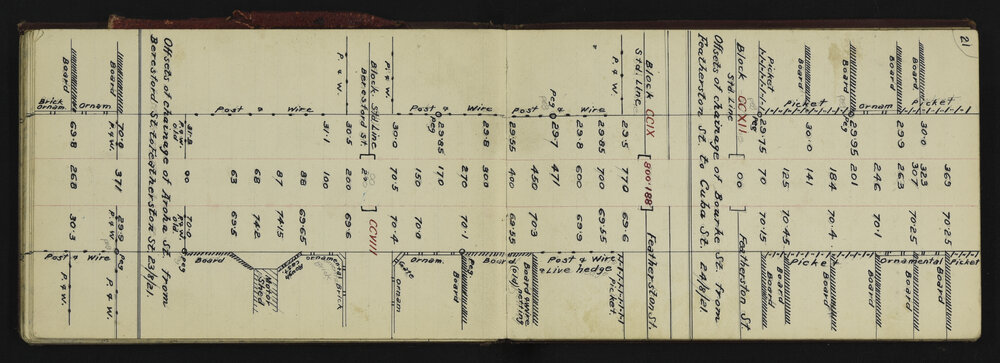 21
369
Picket 30·0 323 70·25 Picket
307 Board
Board 29·9 263 70·25 Ornamental
Ornam 246 70·1 Board
29·95 201
Peg
184 70·4 Board
Board 30·0 141 Picket
Picket 125 70·45 Board
Picked 29·75 70 70·15 Board
Peg
Block CCXII 00 Featherston St.
Std Line
Offsets of chainage of Bourke St. from
Featherston St. to Cuba St. 24/2/21.
Block CCIX [800·188] Featherston St.
Std. Line
P. & W. 29·5 770 69·6 Picket
29·85 700 69·55 Post & Wire
& Live hedge
29·8 600 69·9
Peg 29·7 471
Post & Wire 450 70·3 Board & wire
(old) netting
29·55 400 69·55
29·8 300 Board
270 70·1 Peg
Board
Peg 29·85 170
Post & Wire 150 70·0 Ornam.
P. & W. 30·0 70·5 70·4 Gate
ornam
Block Std Line [200·] CCVIII
Beresford St.
P. & W. 30·5 200 69·6
31·1 100 Brick
ornam
88 69·65
87 74·5
Post & Wire 68 74·2 Motor
Shed
63 69·5
Board
31·8 00 70·0 Peg
P. & W. old P. & W. old
Offsets of chainage of Aroha St. from
Beresford St. to Featherston St. 23/2/21.
Board 70·9 371 29·9 Peg
P. & W. P. & W.
Ornam Post & Wire
Board 69·8 268 30·3 P. & W.
Brick
ornam.